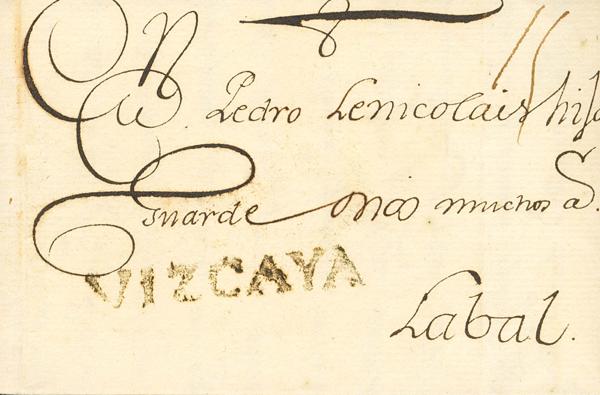 Pedro Lenicolais hijo
Guarde Dios muchos a.s
VIZCAYA
Labal.